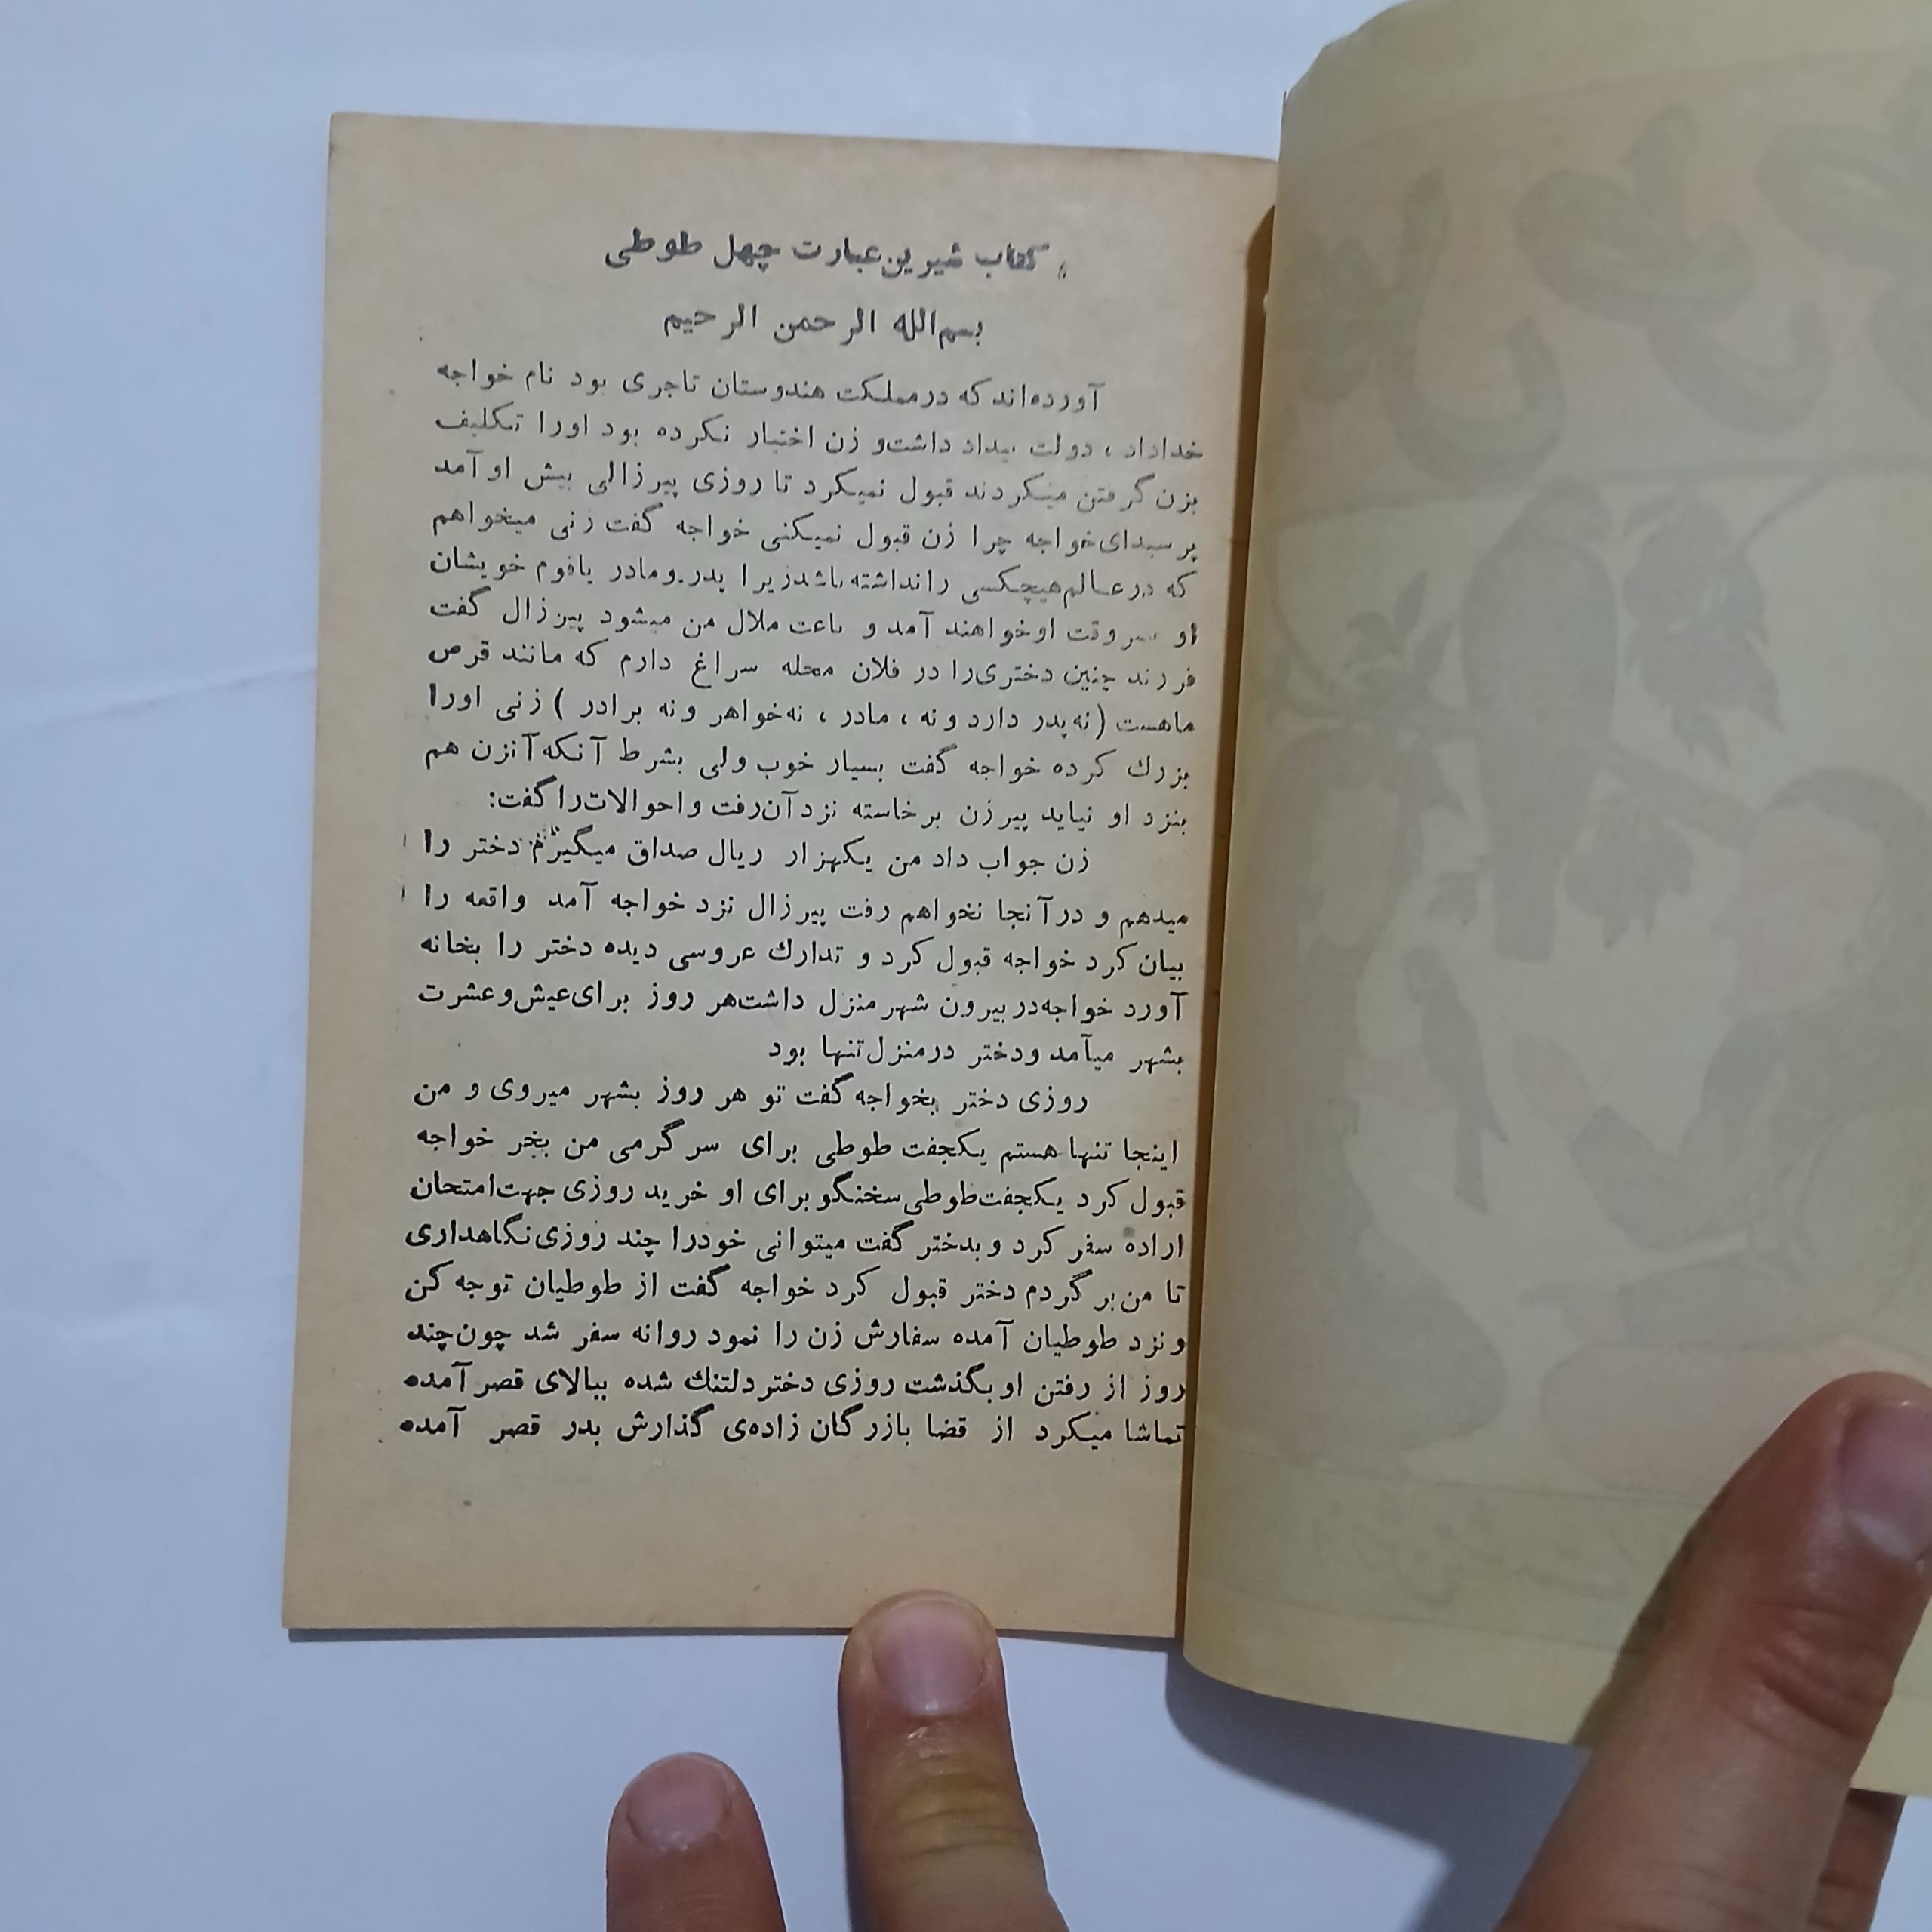 کتاب شیرین عبارت چهل طوطی
بسم‌الله الرحمن الرحیم
آورده‌اند که در مملکت هندوستان تاجری بود نام خواجه
خداداد ، دولت بیداد داشت و زن اختیار نکرده بود اورا تکلیف
بزن گرفتن میکردند قبول نمیکرد تا روزی پیرزالی پیش او آمد
پرسید ای خواجه چرا زن قبول نمیکنی خواجه گفت زنی میخواهم
که در عالم هیچکسی را نداشته باشد زیرا پدر و مادر یا قوم خویشان
او وقت او خواهند آمد و باعث ملال من میشود پیرزال گفت
فرزند چنین دختری را در فلان محله سراغ دارم که مانند قرص
ماهست (نه پدر دارد و نه ، مادر ، نه خواهر و نه برادر ) زنی اورا
بزرك کرده خواجه گفت بسیار خوب ولی بشرط آنکه آنزن هم
بنزد او نیاید پیرزن برخاسته نزد آن رفت و احوالات را گفت:
زن جواب داد من یکهزار ریال صداق میگیرم دختر را
میدهم و در آنجا نخواهم رفت پیرزال نزد خواجه آمد واقعه را
بیان کرد خواجه قبول کرد و تدارك عروسی دیده دختر را بخانه
آورد خواجه در بیرون شهر منزل داشت هر روز برای عیش و عشرت
بشهر میآمد و دختر در منزل تنها بود
روزی دختر بخواجه گفت تو هر روز بشهر میروی و من
اینجا تنها هستم یکجفت طوطی برای سرگرمی من بخر خواجه
قبول کرد یکجفت طوطی سخنگو برای او خرید روزی جهت امتحان
اراده سفر کرد و بدختر گفت میتوانی خودرا چند روزی نگاهداری
تا من بر گردم دختر قبول کرد خواجه گفت از طوطیان توجه کن
و نزد طوطیان آمده سفارش زن را نمود روانه سفر شد چون چند
روز از رفتن او بگذشت روزی دختر دلتنك شده ببالای قصر آمده
تماشا میکرد از قضا بازرگان زاده‌ی گذارش بدر قصر آمده